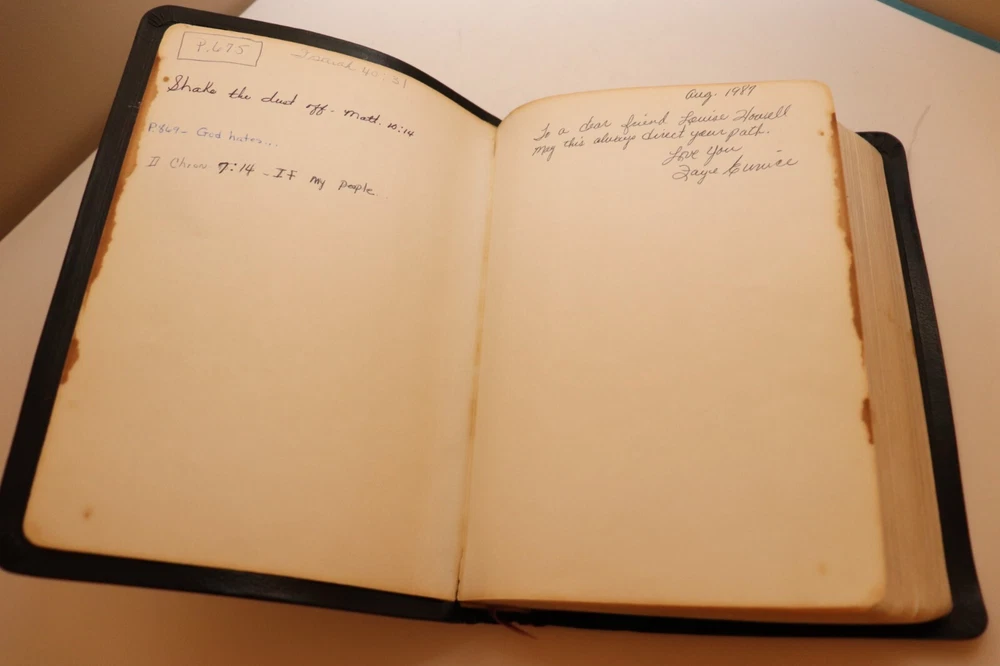 P.675
Isaiah 40:31
Shake the dust off - Matt. 10:14
P.869 - God hates...
II Chron 7:14 - If my people
Aug. 1987
To a dear friend Louise Howell
May this always direct your path.
Love you
Faye Eunice